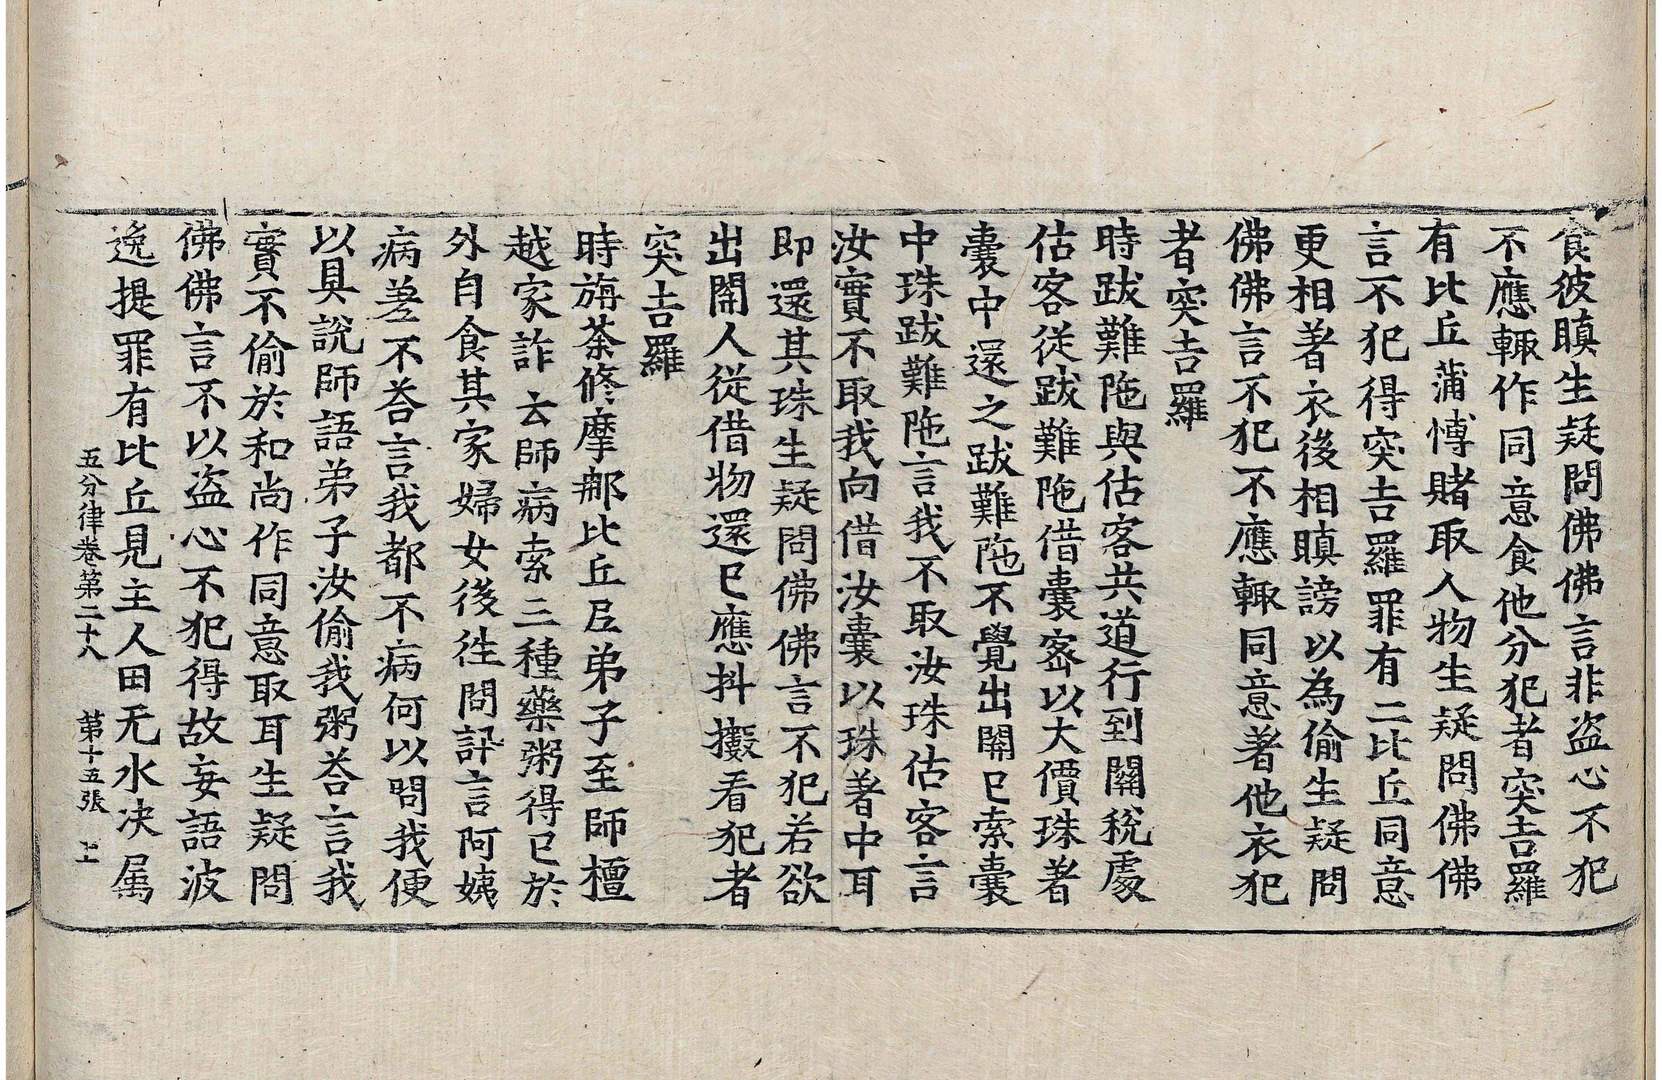 食彼瞋生疑問佛佛言非盜心不犯
不應輙作同意食他分犯者突吉羅
有比丘蒲愽賭取人物生疑問佛佛
言不犯得突吉羅罪有二比丘同意
更相著衣後相瞋謗以為偷生疑問
佛佛言不犯不應輙同意著他衣犯
者突吉羅
時跋難陁與估客共道行到關稅處
估客從跋難陁借囊密以大價珠著
囊中還之跋難陁不覺出關已索囊
中珠跋難陁言我不取汝珠估客言
汝實不取我向借汝囊以珠著中耳
即還其珠生疑問佛佛言不犯若欲
出關人從借物還已應抖擻看犯者
突吉羅
時旃荼修摩那比丘尼弟子至師檀
越家詐云師病索三種藥粥得已於
外自食其家婦女後徃問訊言阿姨
病差不荅言我都不病何以問我便
以具說師語弟子汝偷我粥荅言我
實不偷於和尚作同意取耳生疑問
佛佛言不以盜心不犯得故妄語波
逸提罪有比丘見主人田无水决属
五分律卷第二十八 第十五張 上